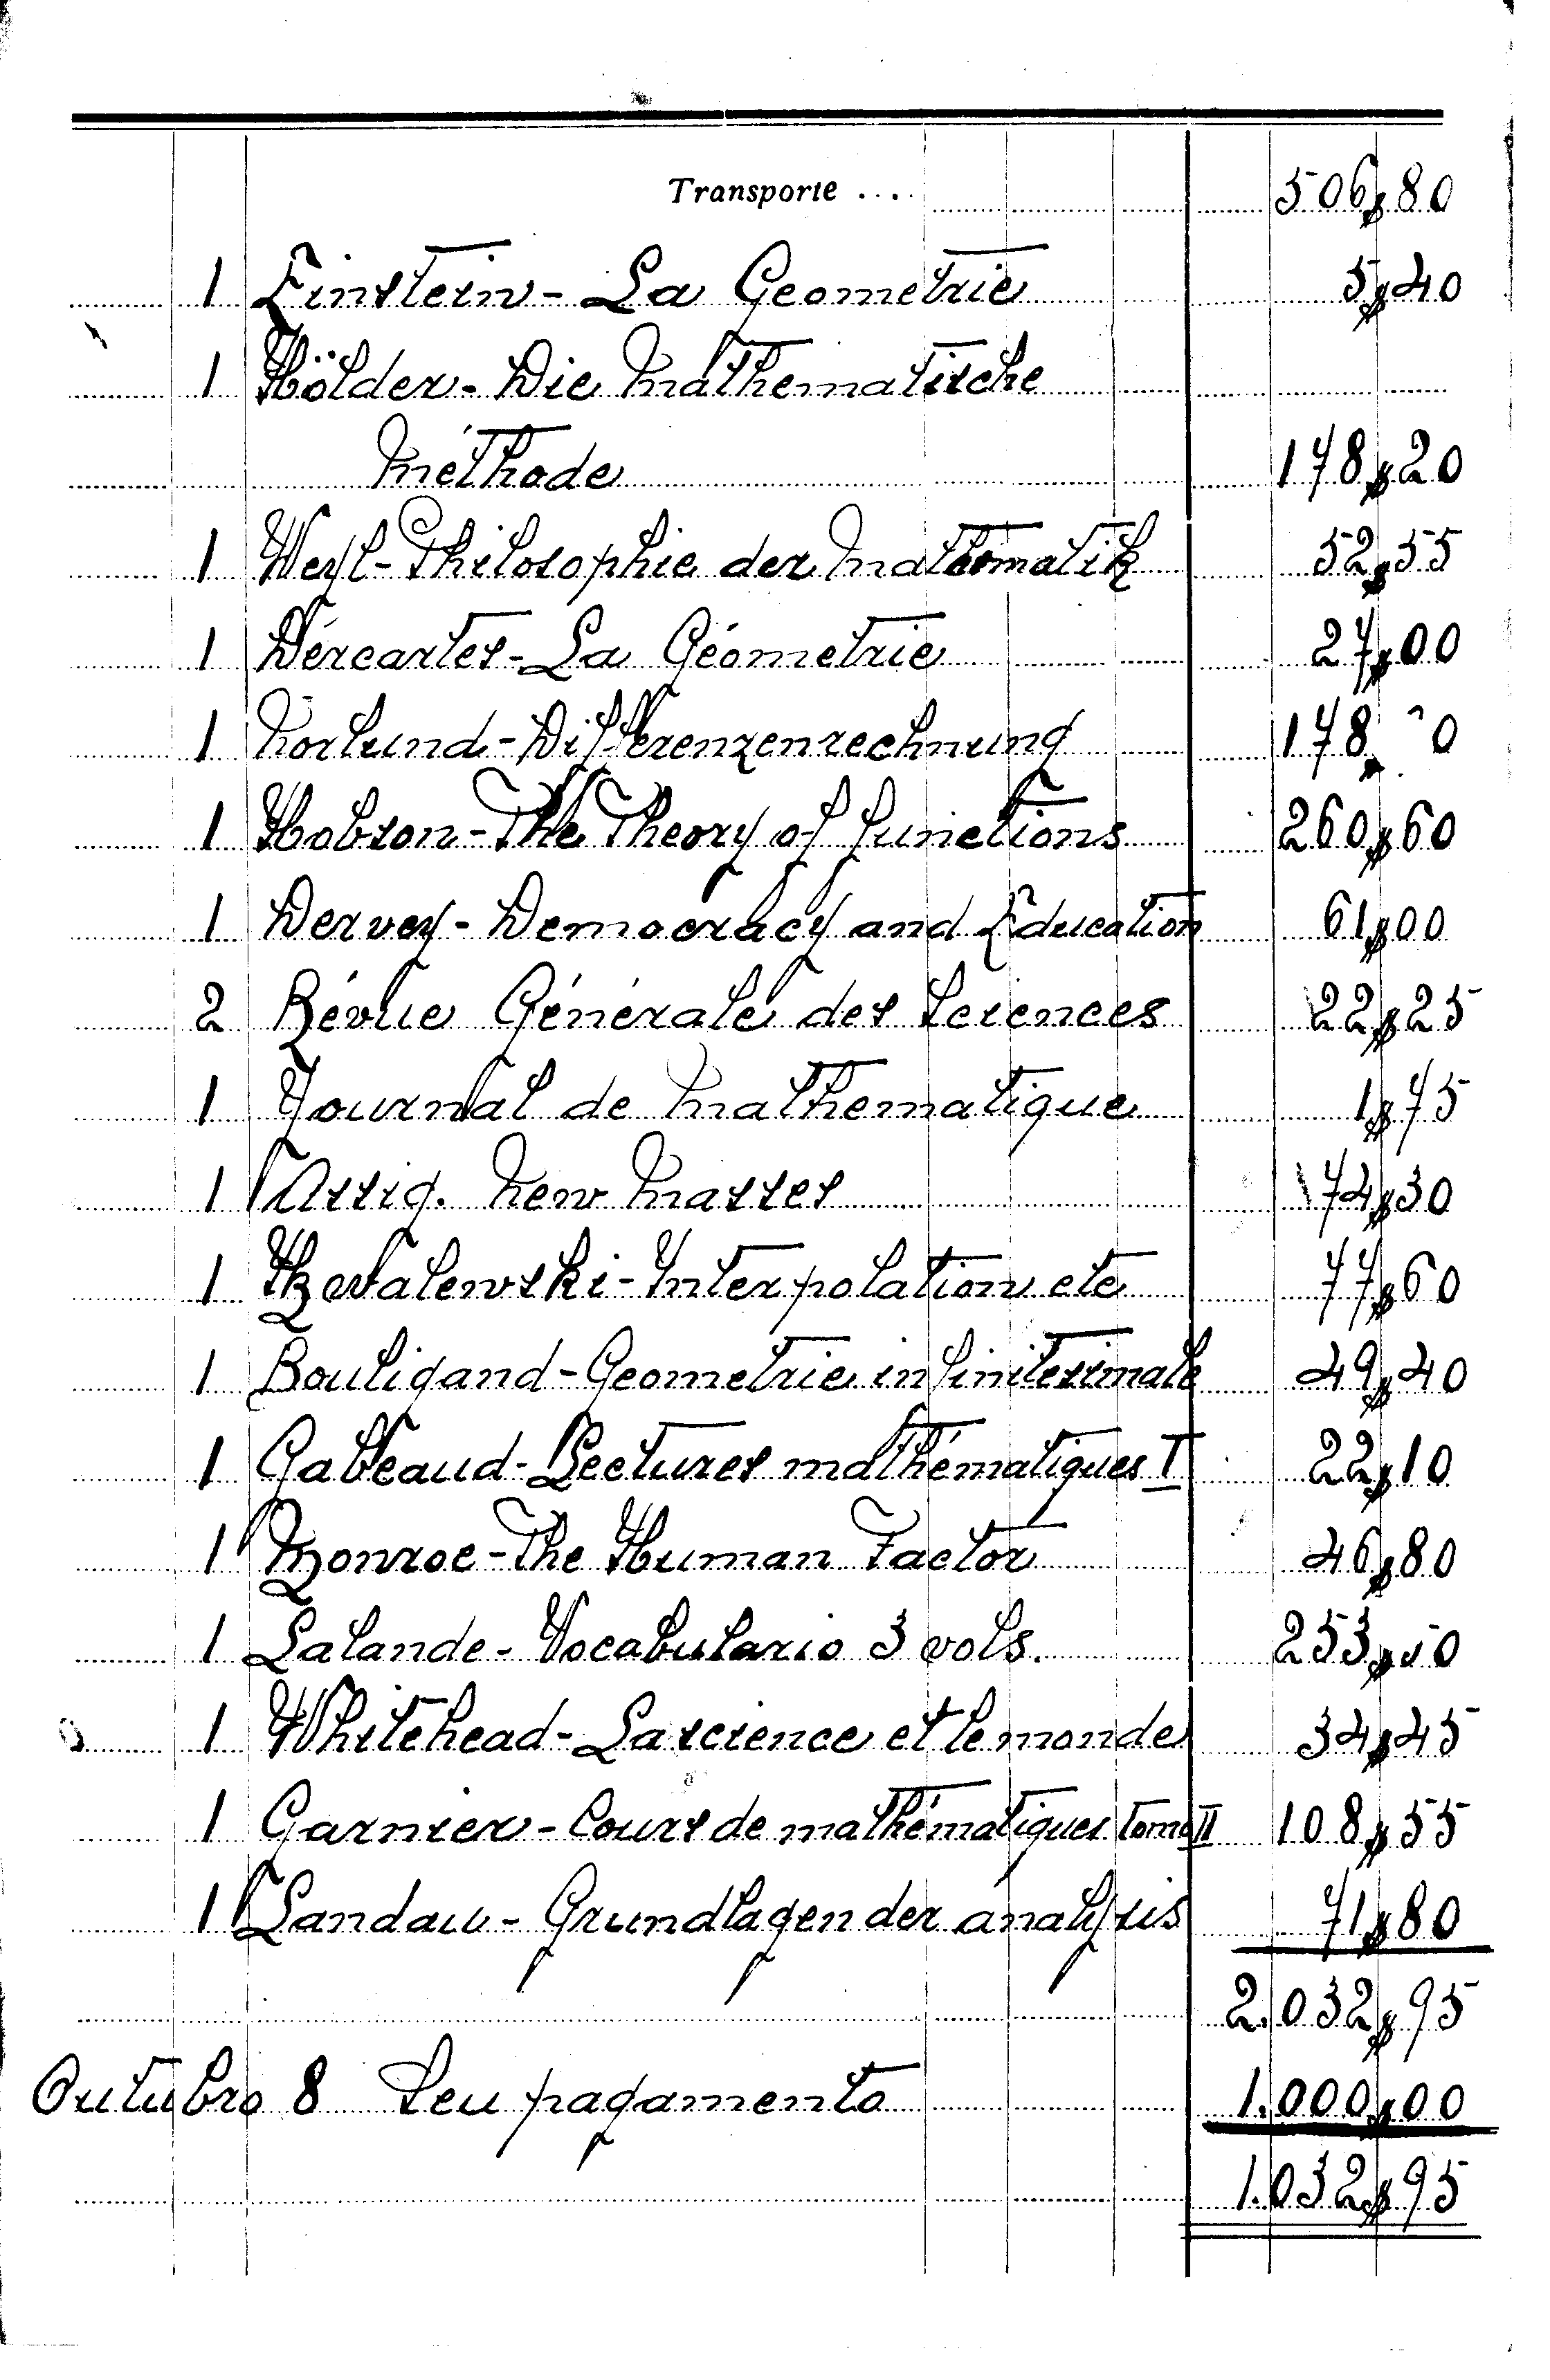 Transporte .... 506$80
1 Einstein - La Geometrie 5$40
1 Hölder - Die Mathematische
Méthode 178$20
1 Weyl - Philosophie der Mathematik 52$55
1 Déscartes - La Géometrie 27$00
1 Norlund - Differenzenrechnung 178
1 Hobson - The Theory of functions 260$60
1 Dervey - Democracy and Education 61$00
2 Révue Générale des Sciences 22$25
1 Journal de Mathematique 1$75
1 Assig. New Masses 74$30
1 Kowalewski - Interpolation etc 77$60
1 Bouligand - Geometrie infinitesimale 49$40
1 Gabeaud - Lectures mathématiques I 22$10
1 Monroe - The Human Factor 46$80
1 Lalande - Vocabulario 3 vols. 253$50
1 Whitehead - La science et le monde 34$45
1 Garnier - Cours de mathématiques tomo II 108$55
1 Landau - Grundlagen der analysis 71$80
2.032$95
Outubro 8 Seu pagamento 1.000$00
1.032$95